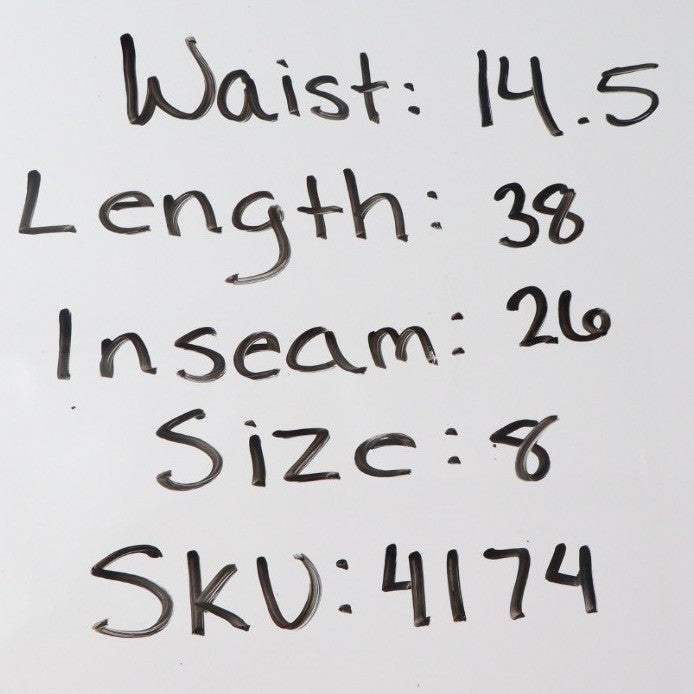 Waist: 14.5
Length: 38
Inseam: 26
Size: 8
SKU: 4174